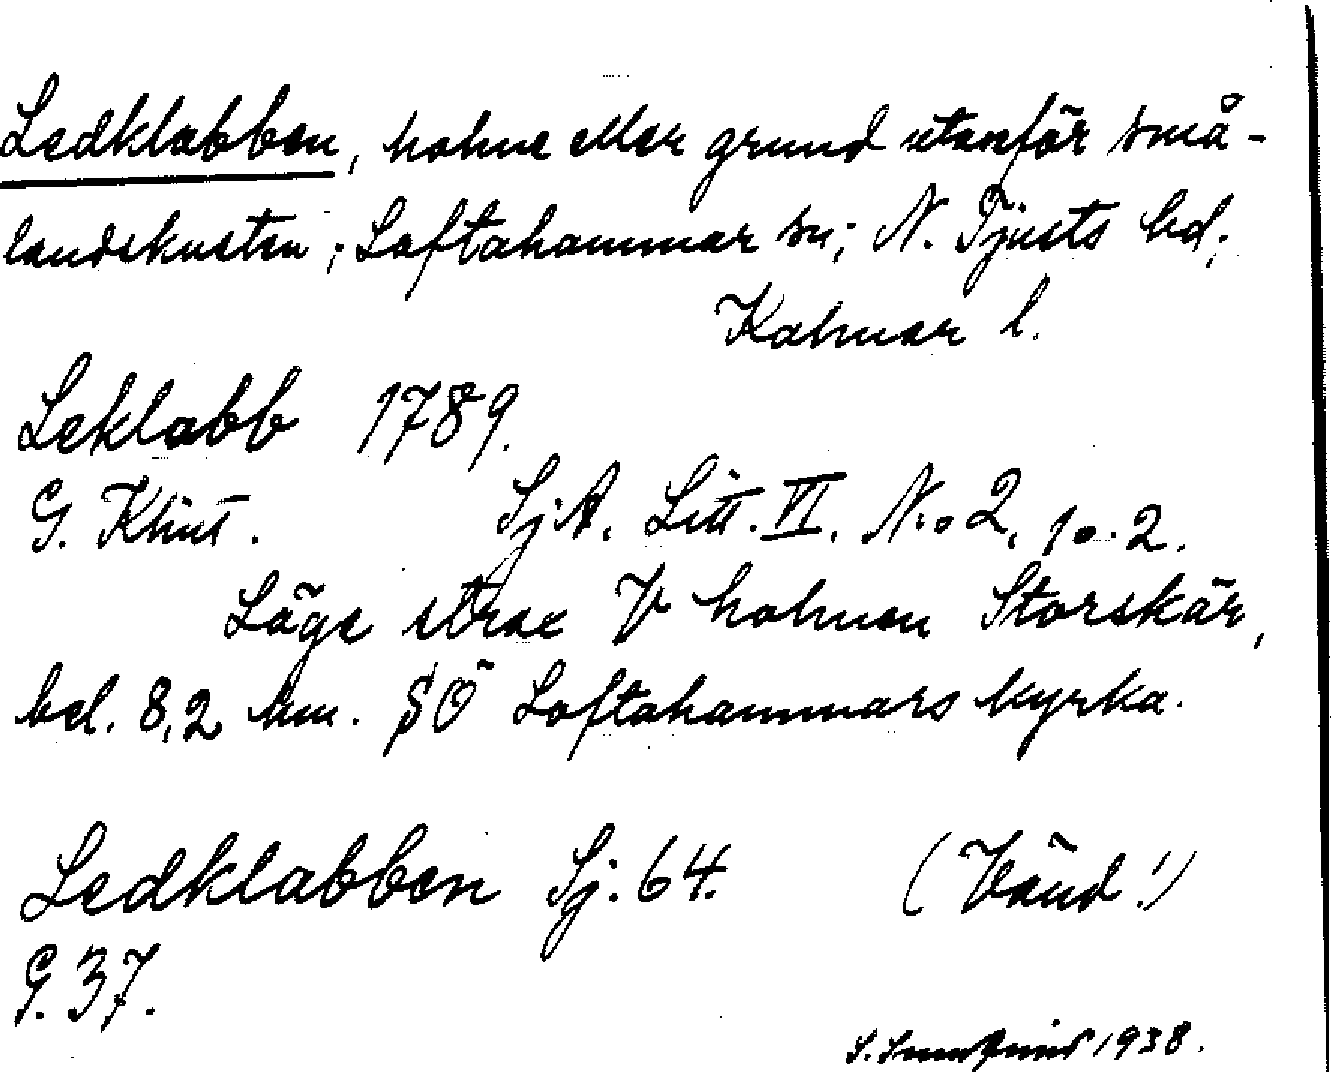 Ledklabben, holme eller grund utanför små-
landskusten; Loftahammar sn; N. Tjusts hd;
Kalmar l.
Leklabb 1789.
G. Klint. SjA. Litt. VI. N.o 2, 1 o. 2.
Läge strax V holmen Storskär,
bel. 8,2 km. SÖ Loftahammars kyrka.
Ledklabben Sj. 64. (Vänd!)
G. 37.
1938.